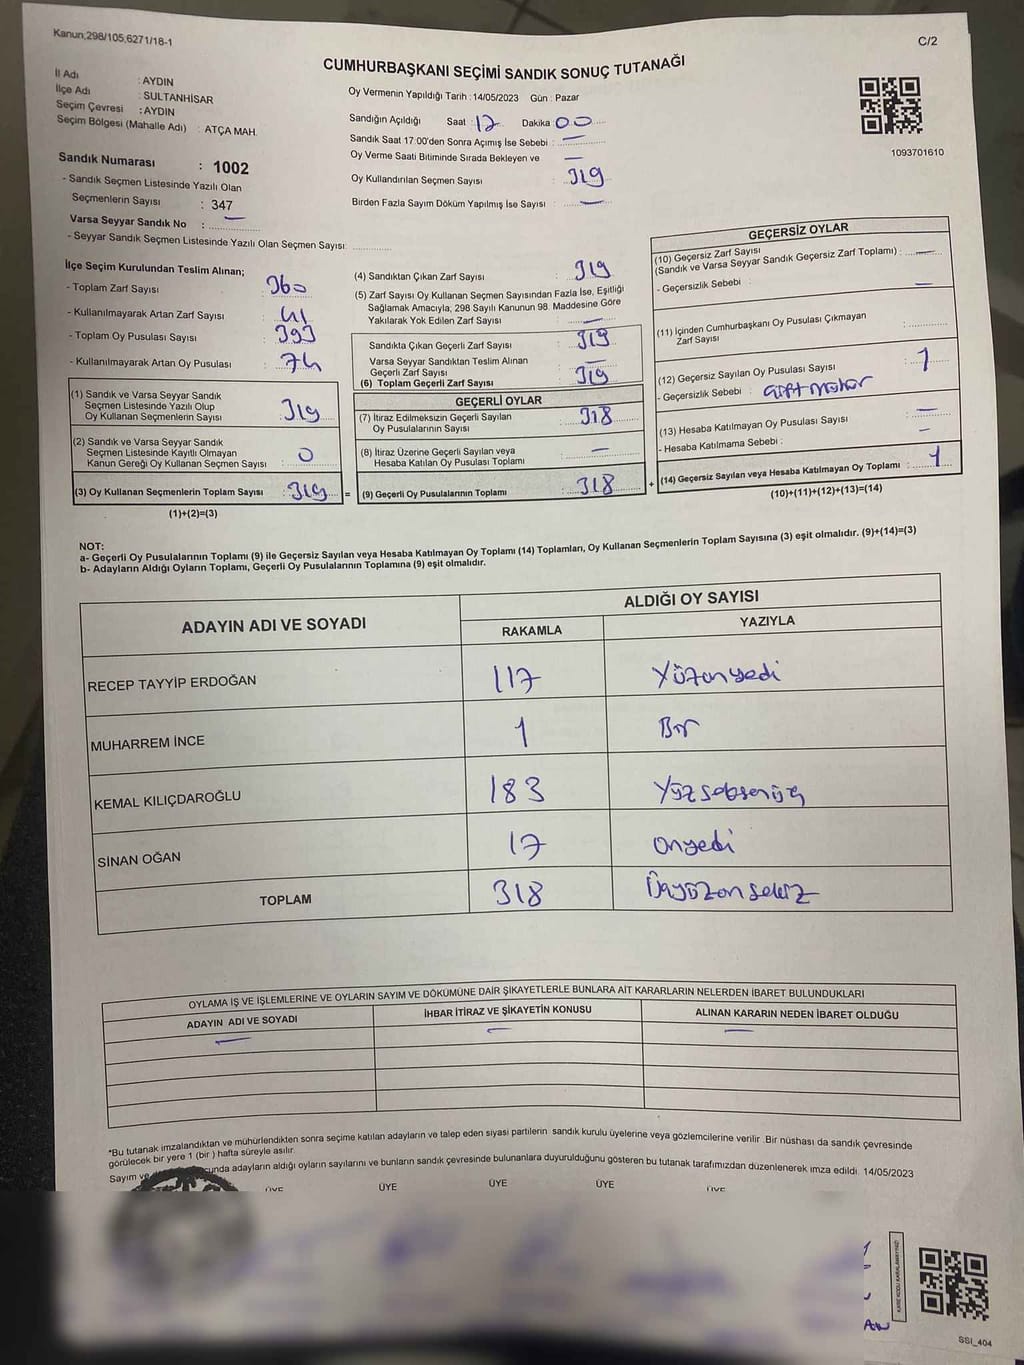 Kanun;298/105,6271/18-1
C/2
CUMHURBAŞKANI SEÇİMİ SANDIK SONUÇ TUTANAĞI
İl Adı : AYDIN
İlçe Adı : SULTANHİSAR
Seçim Çevresi : AYDIN
Seçim Bölgesi (Mahalle Adı) : ATÇA MAH.
Sandık Numarası : 1002
- Sandık Seçmen Listesinde Yazılı Olan
Seçmenlerin Sayısı : 347
Varsa Seyyar Sandık No : —
- Seyyar Sandık Seçmen Listesinde Yazılı Olan Seçmen Sayısı:
Oy Vermenin Yapıldığı Tarih : 14/05/2023 Gün : Pazar
Sandığın Açıldığı Saat : 17 Dakika : 00
Sandık Saat 17:00'den Sonra Açımış İse Sebebi : —
Oy Verme Saati Bitiminde Sırada Bekleyen ve —
Oy Kullandırılan Seçmen Sayısı : 319
Birden Fazla Sayım Döküm Yapılmış İse Sayısı : —
1093701610
İlçe Seçim Kurulundan Teslim Alınan;
- Toplam Zarf Sayısı : 360
- Kullanılmayarak Artan Zarf Sayısı : 41
- Toplam Oy Pusulası Sayısı : 393
- Kullanılmayarak Artan Oy Pusulası : 74
(1) Sandık ve Varsa Seyyar Sandık
Seçmen Listesinde Yazılı Olup
Oy Kullanan Seçmenlerin Sayısı : 319
(2) Sandık ve Varsa Seyyar Sandık
Seçmen Listesinde Kayıtlı Olmayan
Kanun Gereği Oy Kullanan Seçmen Sayısı : 0
(3) Oy Kullanan Seçmenlerin Toplam Sayısı : 319 =
(1)+(2)=(3)
(4) Sandıktan Çıkan Zarf Sayısı : 319
(5) Zarf Sayısı Oy Kullanan Seçmen Sayısından Fazla İse, Eşitliği
Sağlamak Amacıyla, 298 Sayılı Kanunun 98. Maddesine Göre
Yakılarak Yok Edilen Zarf Sayısı : —
Sandıkta Çıkan Geçerli Zarf Sayısı : 319
Varsa Seyyar Sandıktan Teslim Alınan
Geçerli Zarf Sayısı : —
(6) Toplam Geçerli Zarf Sayısı : 319
GEÇERLİ OYLAR
(7) İtiraz Edilmeksizin Geçerli Sayılan
Oy Pusulalarının Sayısı : 318
(8) İtiraz Üzerine Geçerli Sayılan veya
Hesaba Katılan Oy Pusulası Toplamı : —
(9) Geçerli Oy Pusulalarının Toplamı : 318 +
GEÇERSİZ OYLAR
(10) Geçersiz Zarf Sayısı
(Sandık ve Varsa Seyyar Sandık Geçersiz Zarf Toplamı) : —
- Geçersizlik Sebebi : —
(11) İçinden Cumhurbaşkanı Oy Pusulası Çıkmayan
Zarf Sayısı :
(12) Geçersiz Sayılan Oy Pusulası Sayısı : 1
- Geçersizlik Sebebi : çift mühür
(13) Hesaba Katılmayan Oy Pusulası Sayısı : —
- Hesaba Katılmama Sebebi : —
(14) Geçersiz Sayılan veya Hesaba Katılmayan Oy Toplamı : 1
(10)+(11)+(12)+(13)=(14)
NOT:
a- Geçerli Oy Pusulalarının Toplamı (9) ile Geçersiz Sayılan veya Hesaba Katılmayan Oy Toplamı (14) Toplamları, Oy Kullanan Seçmenlerin Toplam Sayısına (3) eşit olmalıdır. (9)+(14)=(3)
b- Adayların Aldığı Oyların Toplamı, Geçerli Oy Pusulalarının Toplamına (9) eşit olmalıdır.
ADAYIN ADI VE SOYADI
ALDIĞI OY SAYISI
RAKAMLA YAZIYLA
RECEP TAYYİP ERDOĞAN 117 Yüzonyedi
MUHARREM İNCE 1 Bir
KEMAL KILIÇDAROĞLU 183 Yüzseksenüç
SİNAN OĞAN 17 Onyedi
TOPLAM 318 Üçyüzonsekiz
OYLAMA İŞ VE İŞLEMLERİNE VE OYLARIN SAYIM VE DÖKÜMÜNE DAİR ŞİKAYETLERLE BUNLARA AİT KARARLARIN NELERDEN İBARET BULUNDUKLARI
ADAYIN ADI VE SOYADI İHBAR İTİRAZ VE ŞİKAYETİN KONUSU ALINAN KARARIN NEDEN İBARET OLDUĞU
— — —
*Bu tutanak imzalandıktan ve mühürlendikten sonra seçime katılan adayların ve talep eden siyasi partilerin sandık kurulu üyelerine veya gözlemcilerine verilir. Bir nüshası da sandık çevresinde
görülecek bir yere 1 (bir) hafta süreyle asılır.
Sayım ve unda adayların aldığı oyların sayılarını ve bunların sandık çevresinde bulunanlara duyurulduğunu gösteren bu tutanak tarafımızdan düzenlenerek imza edildi. 14/05/2023
ÜYE ÜYE ÜYE ÜYE ÜYE
SSI_404